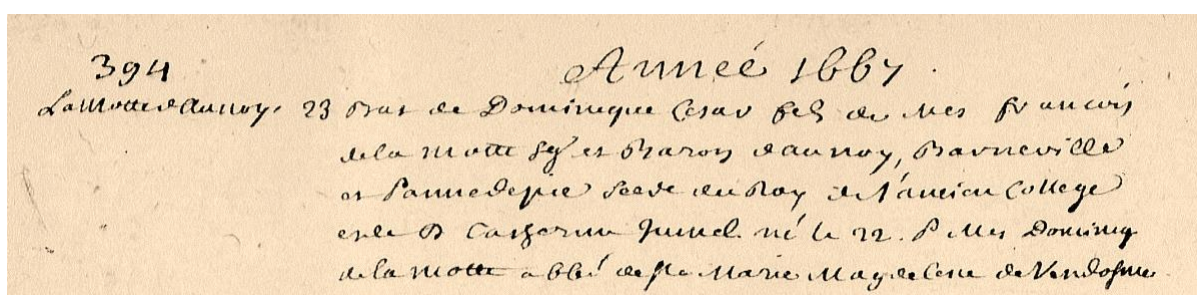 394
Année 1667.
La Motte d'Aunoy. 23 Bat de Dominique Cesar fils de Mes François
de la Motte Sgr et Baron d'aunoy, Barneville
et Pannedepie Secre du Roy de l'ancien College
et de D Catherine Junel né le 22. P Mes Dominiq
de la Motte abbé de Ste Marie Magdelene de Vendosme